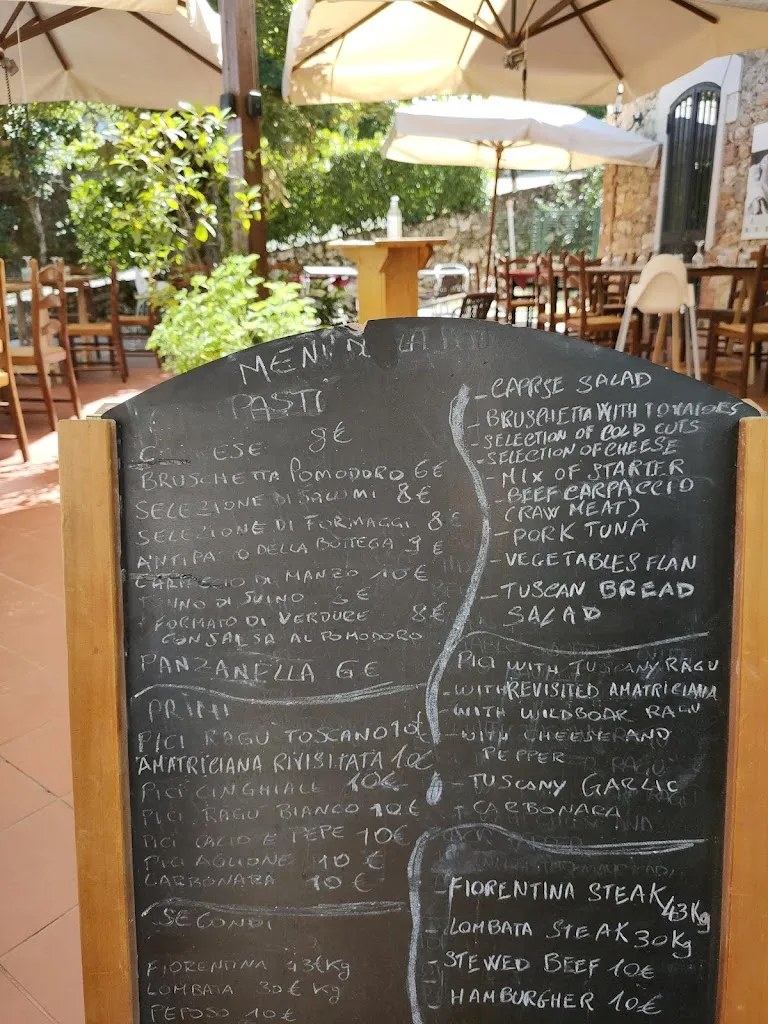 MENÙ
PASTI
8€
BRUSCHETTA POMODORO 6€
SELEZIONE DI SALUMI 8€
SELEZIONE DI FORMAGGI 8€
ANTIPASTO DELLA BOTTEGA 9€
CARPACCIO DI MANZO 10€
DI SUINO
FORMATO DI VERDURE 8€
CON SALSA AL POMODORO
PANZANELLA 6€
PRIMI
PICI RAGU TOSCANO 10€
AMATRICIANA RIVISITATA 10€
PICI CINGHIALE 10€
PICI RAGU BIANCO 10€
PICI CACIO E PEPE 10€
PICI AGLIONE 10€
CARBONARA 10€
SECONDI
FIORENTINA 43€Kg
LOMBATA 30€ Kg
PEPOSO 10€
- CAPRSE SALAD
- BRUSCHETTA WITH TOMATOES
- SELECTION OF COLD CUTS
- SELECTION OF CHEESE
- MIX OF STARTER
- BEEF CARPACCIO
(RAW MEAT)
- PORK TUNA
- VEGETABLES FLAN
- TUSCAN BREAD
SALAD
PICI WITH TUSCANY RAGU
- WITH REVISITED AMATRICIANA
- WITH WILDBOAR RAGU
- WITH CHEESE AND
PEPPER
- TUSCANY GARLIC
- CARBONARA
FIORENTINA STEAK 43Kg
- LOMBATA STEAK 30Kg
- STEWED BEEF 10€
- HAMBURGHER 10€